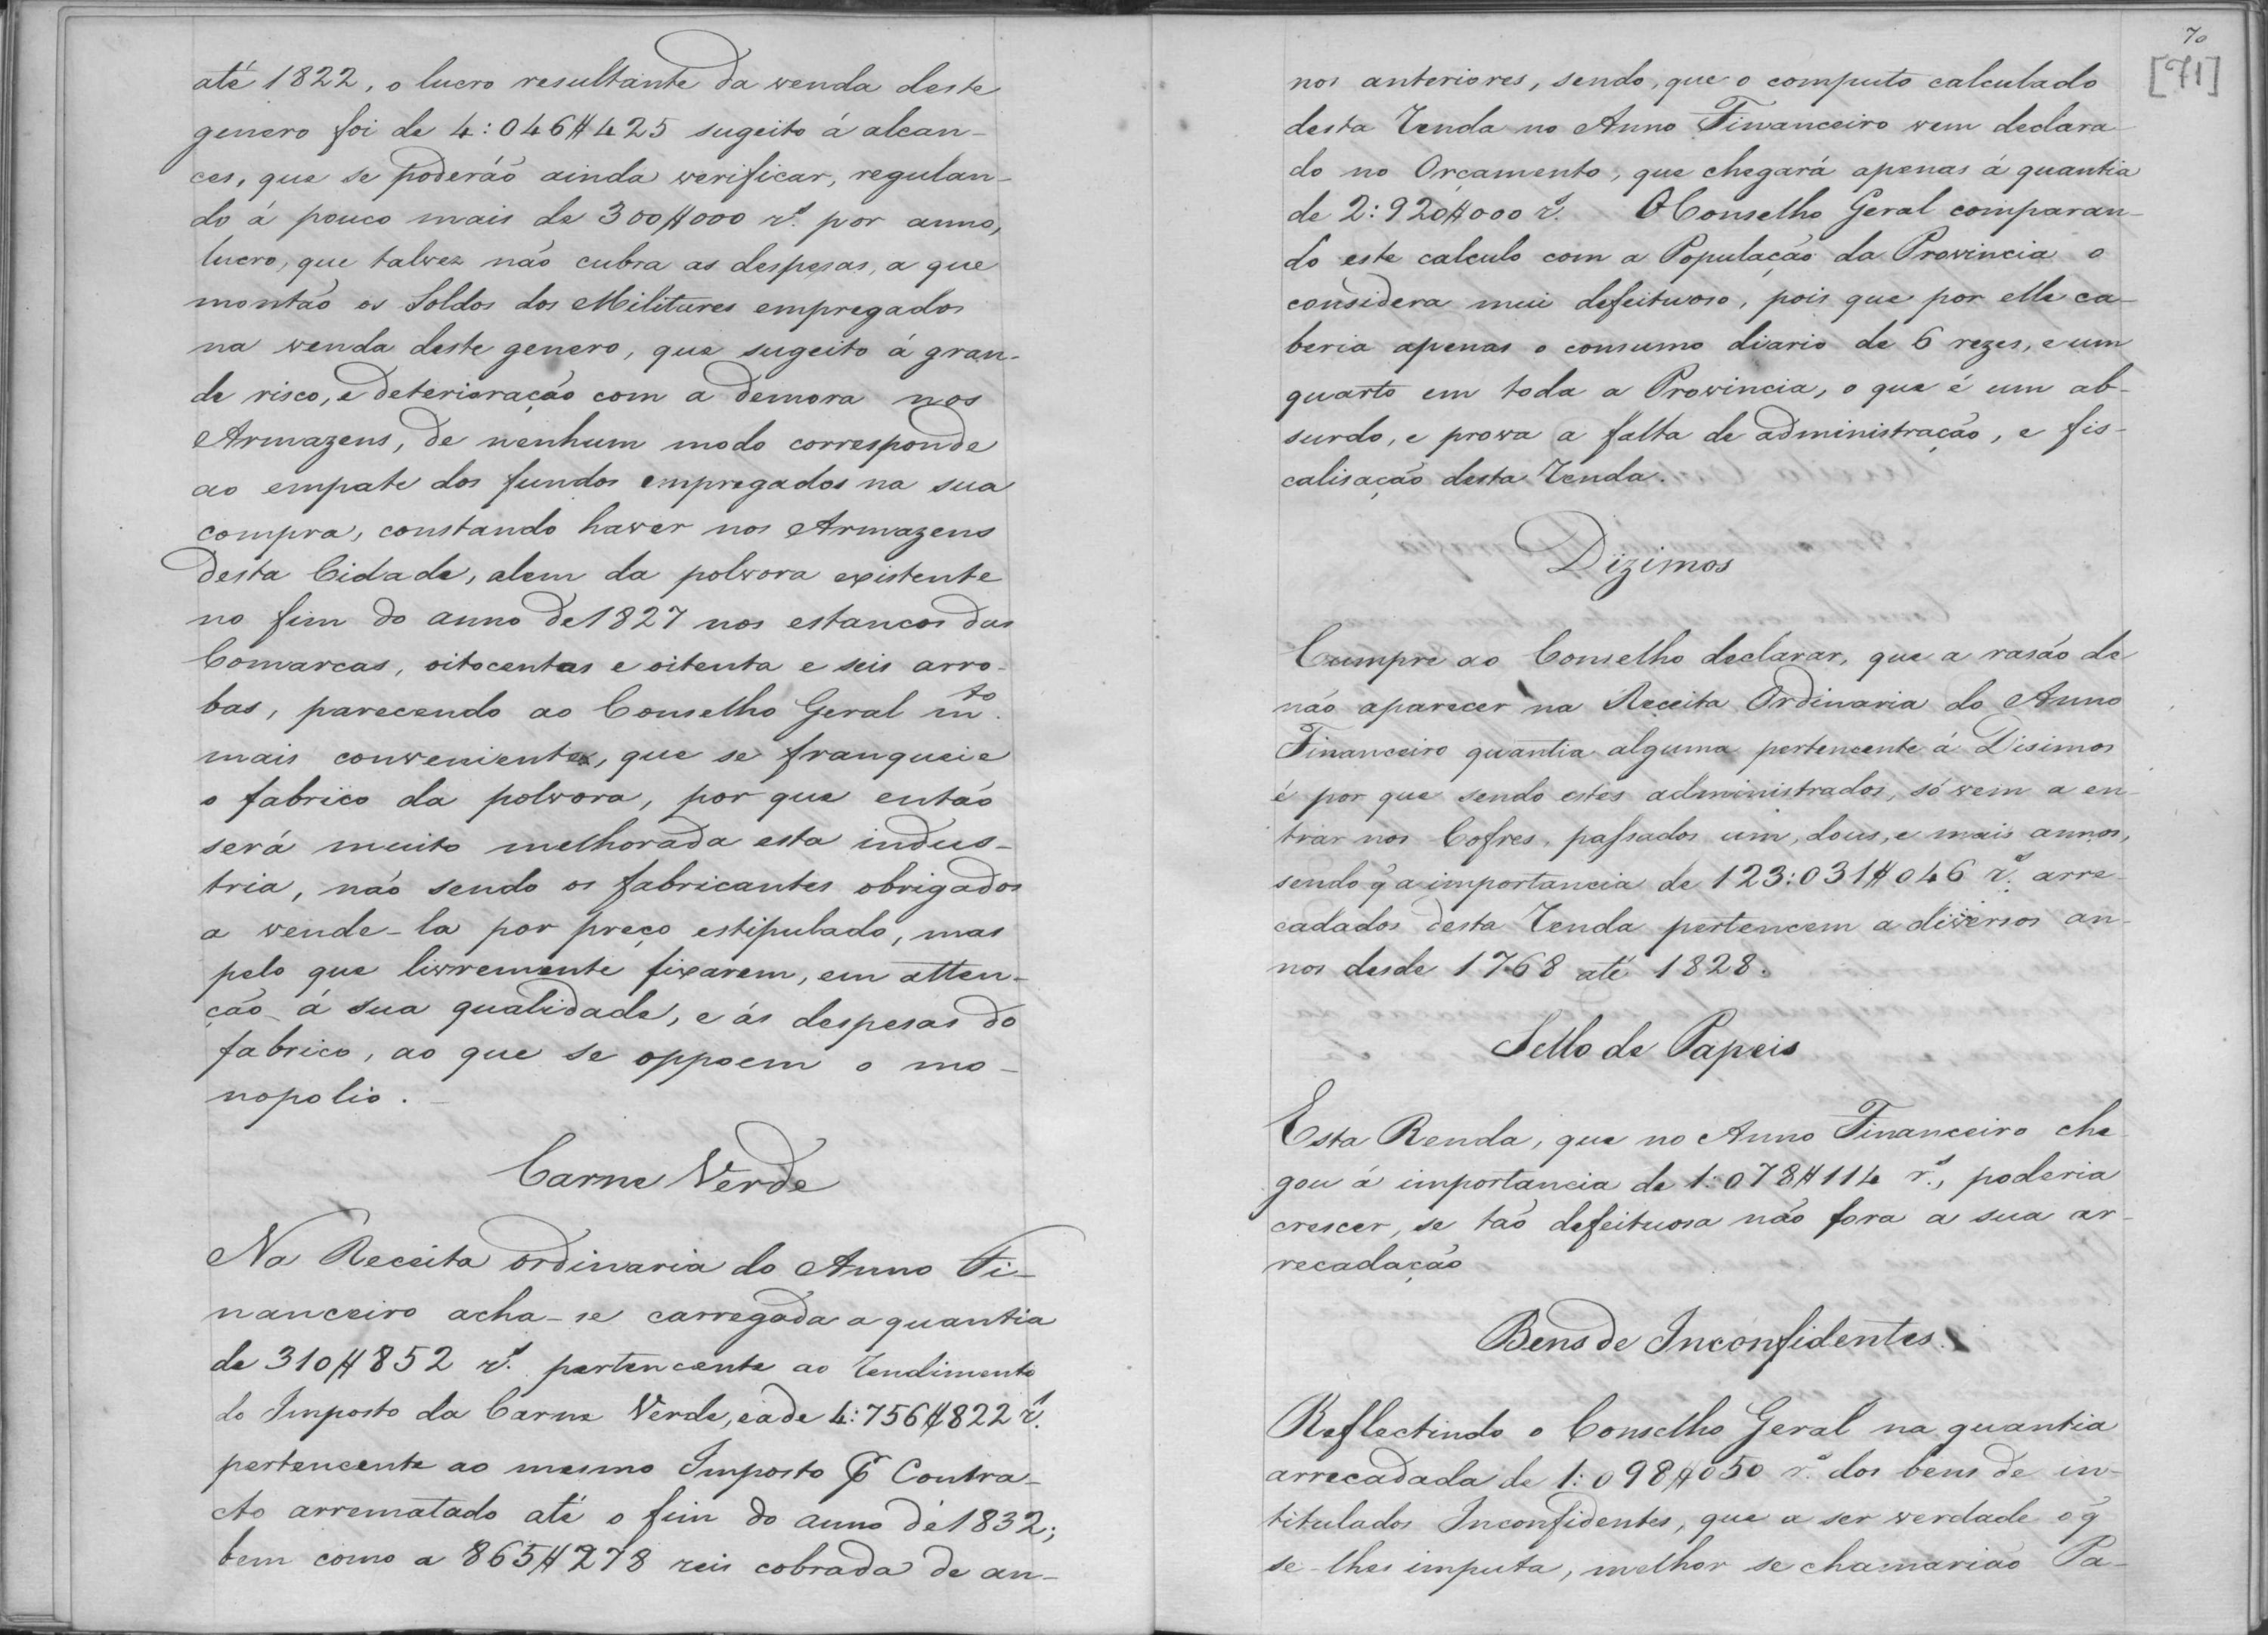 até 1822, o lucro resultante da venda deste
genero foi de 4:046$425 sugeito á alcan-
ces, que se poderáõ ainda verificar, regulan-
do á pouco mais de 300$000 r.s por anno,
lucro, que talvez não cubra as despesas, a que
montão os Soldos dos Militares empregados
na venda deste genero, que sugeito á gran-
de risco, e deterioração com a demora nos
Armazens, de nenhum modo corresponde
ao empate dos fundos empregados na sua
compra, constando haver nos Armazens
desta Cidade, alem da polvora existente
no fim do anno de 1827 nos estancos das
Comarcas, oitocentas e oitenta e seis arro-
bas, parecendo ao Conselho Geral m.to
mais conveniente, que se franqueie
o fabrico da polvora, por que então
será muito melhorada esta indus-
tria, não sendo os fabricantes obrigados
a vende-la por preço estipulado, mas
pelo que livremente fixarem, em atten-
ção á sua qualidade, e ás despesas do
fabrico, ao que se oppoem o mo-
nopolio.
Carne Verde
Na Receita ordinaria do Anno Fi-
nanceiro acha-se carregada a quantia
de 310$852 r.s pertencente ao Rendimento
do Imposto da Carne Verde, e a de 4:756$822 r.s
pertencente ao mesmo Imposto p.r Contra-
cto arrematado até o fim do anno de 1832;
bem como a 865$278 reis cobrada de an-
70
[71]
nos anteriores, sendo, que o computo calculado
desta Renda no Anno Financeiro vem declara-
do no Orçamento, que chegará apenas á quantia
de 2:920$000 r.s O Conselho Geral comparan-
do este calculo com a População da Provincia o
considera mui defeituoso, pois que por elle ca-
beria apenas o consumo diario de 6 rezes, e um
quarto em toda a Provincia, o que é um ab-
surdo, e prova a falta de administração, e fis-
calisação desta Renda.
Dizimos
Cumpre ao Conselho declarar, que a rasão de
não aparecer na Receita Ordinaria do Anno
Financeiro quantia alguma pertencente á Disimos
é por que sendo estes administrados, só vem a en-
trar nos Cofres, passados um, dous, e mais annos,
sendo q̃ a importancia de 123:031$046 r.s arre-
cadados desta Renda pertencem a diversos an-
nos desde 1768 até 1828.
Sello de Papeis
Esta Renda, que no Anno Financeiro che-
gou á importancia de 1:078$114 r.s, poderia
crescer, se tão defeituosa não fora a sua ar-
recadação
Bens de Inconfidentes.
Reflectindo o Conselho Geral na quantia
arrecadada de 1:098$050 r.s dos bens de in-
titulados Inconfidentes, que a ser verdade o q̃
se-lhes imputa, melhor se chamarião Pa-